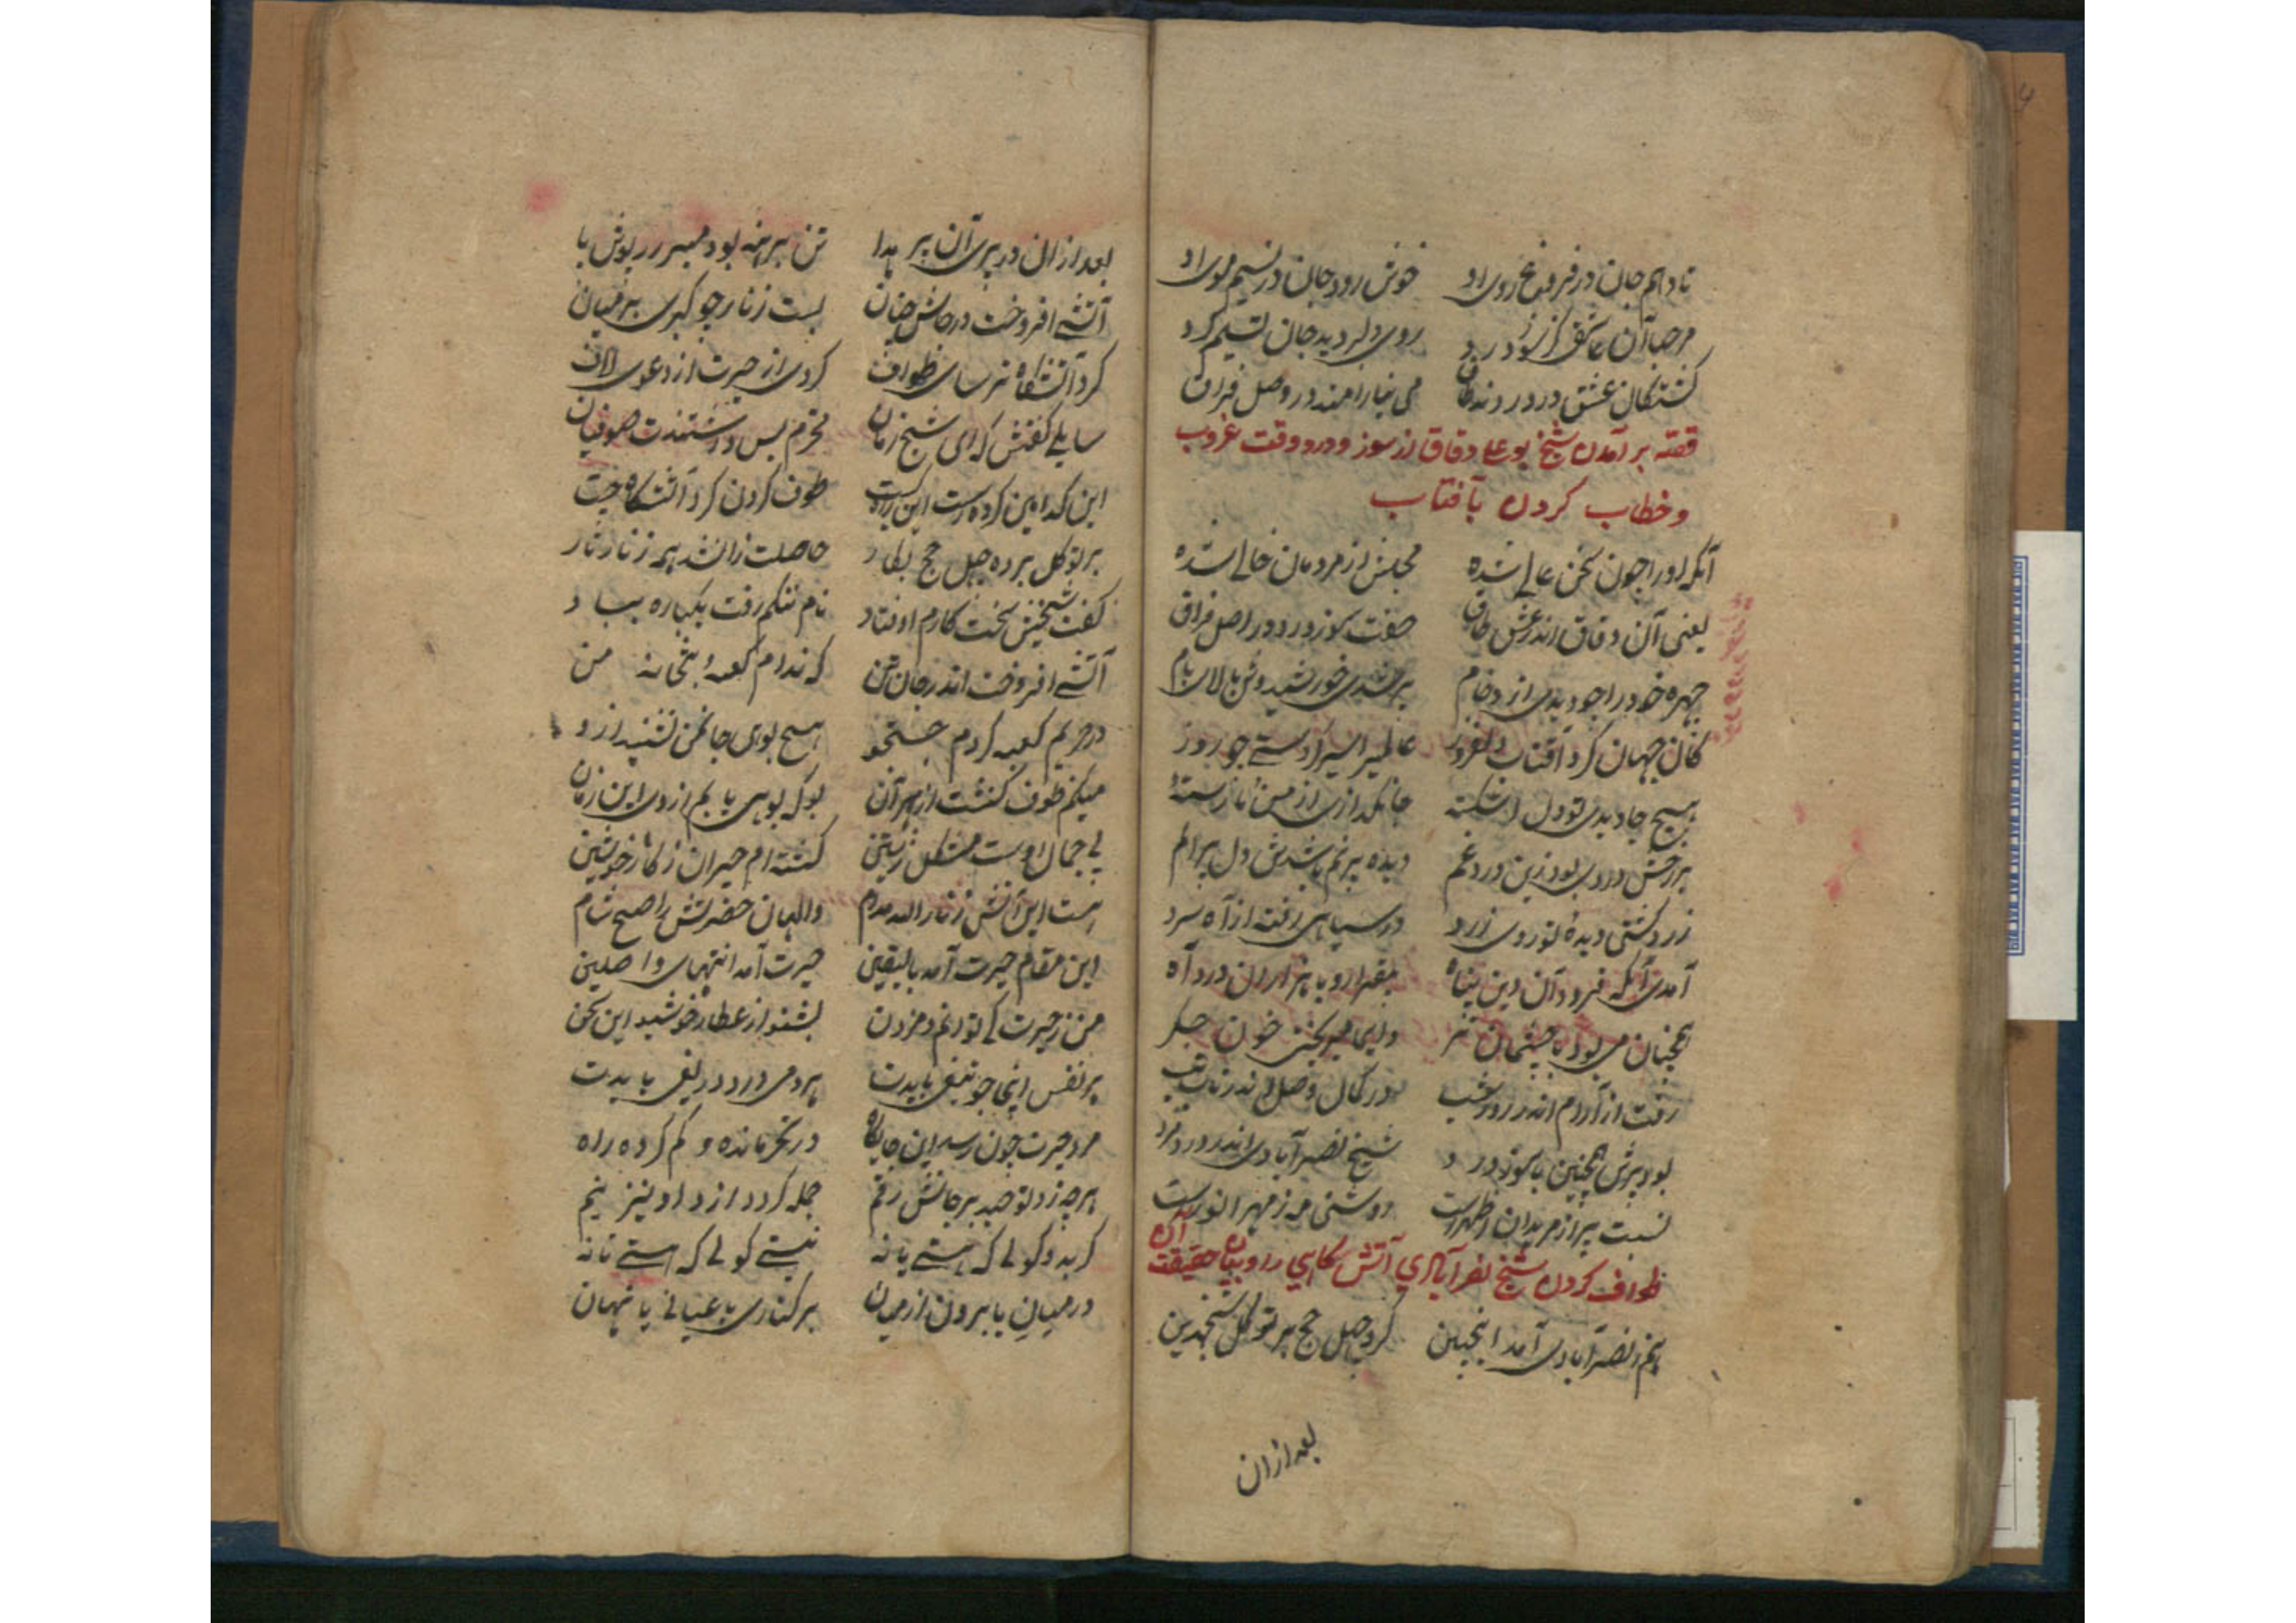 تا دهم جان در فروغ روی او خوش رود جان در نسیم موی او
مرحبا آن عاشقی کز سوز درد روی دلبر دید جان تسلیم کرد
کشتکان عشق در درد وفاق می نیارامند در وصل فراق
قصّه بر آمدن شیخ بوعلی دقاق از سوز و درد وقت غروب
و خطاب کردن بآفتاب
آنکه او را چون سخن عالی شده مجلس از مردمان خالی شده
یعنی آن دقاق اندر عشق طاق جفت سوز و درد در اصل فراق
چهره خود را چو دیدی زرد فام بر شدی خورشید وش بالای بام
کان جهان کرد آفتاب دلفروز عالمیرا سیر کردستی چو روز
هیچ جا دیدی تو دل اشکسته جانکدازی از من
بر رخش دردی بود زین درد غم دیده پر نم باشدش دل پر الم
زرد کشتی دیدهٔ تو روی زرد در سیاهی رفته از آه سرد
آمدی آنکه فرود آن دین پناه بیقرار و با هزاران درد آه
همچنان می بود با چشمان تر دایما میریختی خون جکر
رفت از آرام اندر روز شب در کمال وصل اندر تاب تب
بود پیرش همچنین با سوز درد شیخ نصرآبادی اندر درد فرد
نسبت پیر از مریدان اظهرست روشنی مه ز مهر انورست
طواف کردن شیخ نصرآبادی آتش کاهی را و بیان حقیقت آن
هم ز نصرآبادی آمد اینچنین کرد چهل حج بر توکل شیخ دین
بعد از ان
بعد از ان در پری آن پیر هدا تن برهنه بود بی سرپوش پا
آتشی افروخت در جانش چنان بست زنار چو کبری بر میان
کرد آتشکاه ترسا می طواف کردی از حیرت از دعوی لاف
سایلی کفتش که ای شیخ زمان محرم بس صوفیان
این کدامین کرده است این طوف کردن کرد آتشکاه چیست
بر توکل برده چهل حج بکار حاصلت زان شد همه زنار نار
کفت شیخش سخت کارم اوفتاد نام ننکم رفت یکباره بباد
آتشی افروخت اندر جان تن که ندانم کعبه و بتخانه من
در حریم کعبه کردم جستجو هیچ بوی جان من نشنید ازو
میکنم طوف کنشت از بهر آن بو که بویی یابم از وی این زمان
بی جمال اوست مشکل زیستن کشته ام حیران ز کار خویشتن
هست این آتش زنار مدام والهان حضرتش را صبح شام
این مقام حیرت آمد بالیقین حیرت آمد انتهای واصلین
من ز حیرت کی توانم دم زدن بشنو از عطار خوشید این سخن
هر نفس اینجا چو تیغی بایدت هر دمی درد دریغی بایدت
مرد حیرت چون رسد این جایکاه در تحیر مانده و کم کرده راه
هر چه زد توحید بر جانش رقم جمله کردد از و او نیز هم
کر بدو کوئی که هستی یا نه نیستی کوئی که هستی یا نه
در میان یا برون از میان بر کناری یا عیانی یا نهان